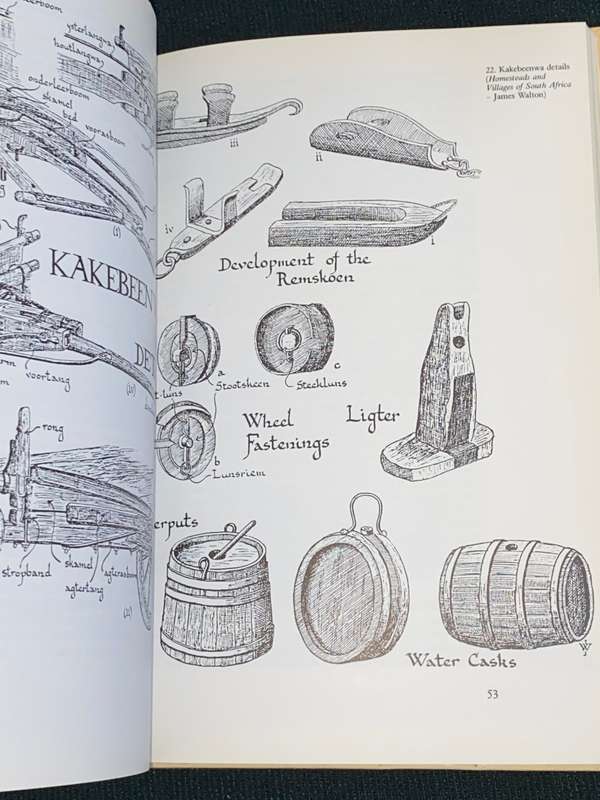 ysterlangwa
houtlangwa
onderleerboom
skamel
bed
voorasboom
(5)
KAKEBEEN
voortang
(10)
rong
stropband
skamel
agterasboom
agtertang
(11)
22. Kakebeenwa details
(Homesteads and
Villages of South Africa
– James Walton)
iii
ii
iv
i
Development of the
Remskoen
a
c
Stootskeen
Steekluns
b
Lunsriem
Wheel
Fastenings
Ligter
Water Casks
53